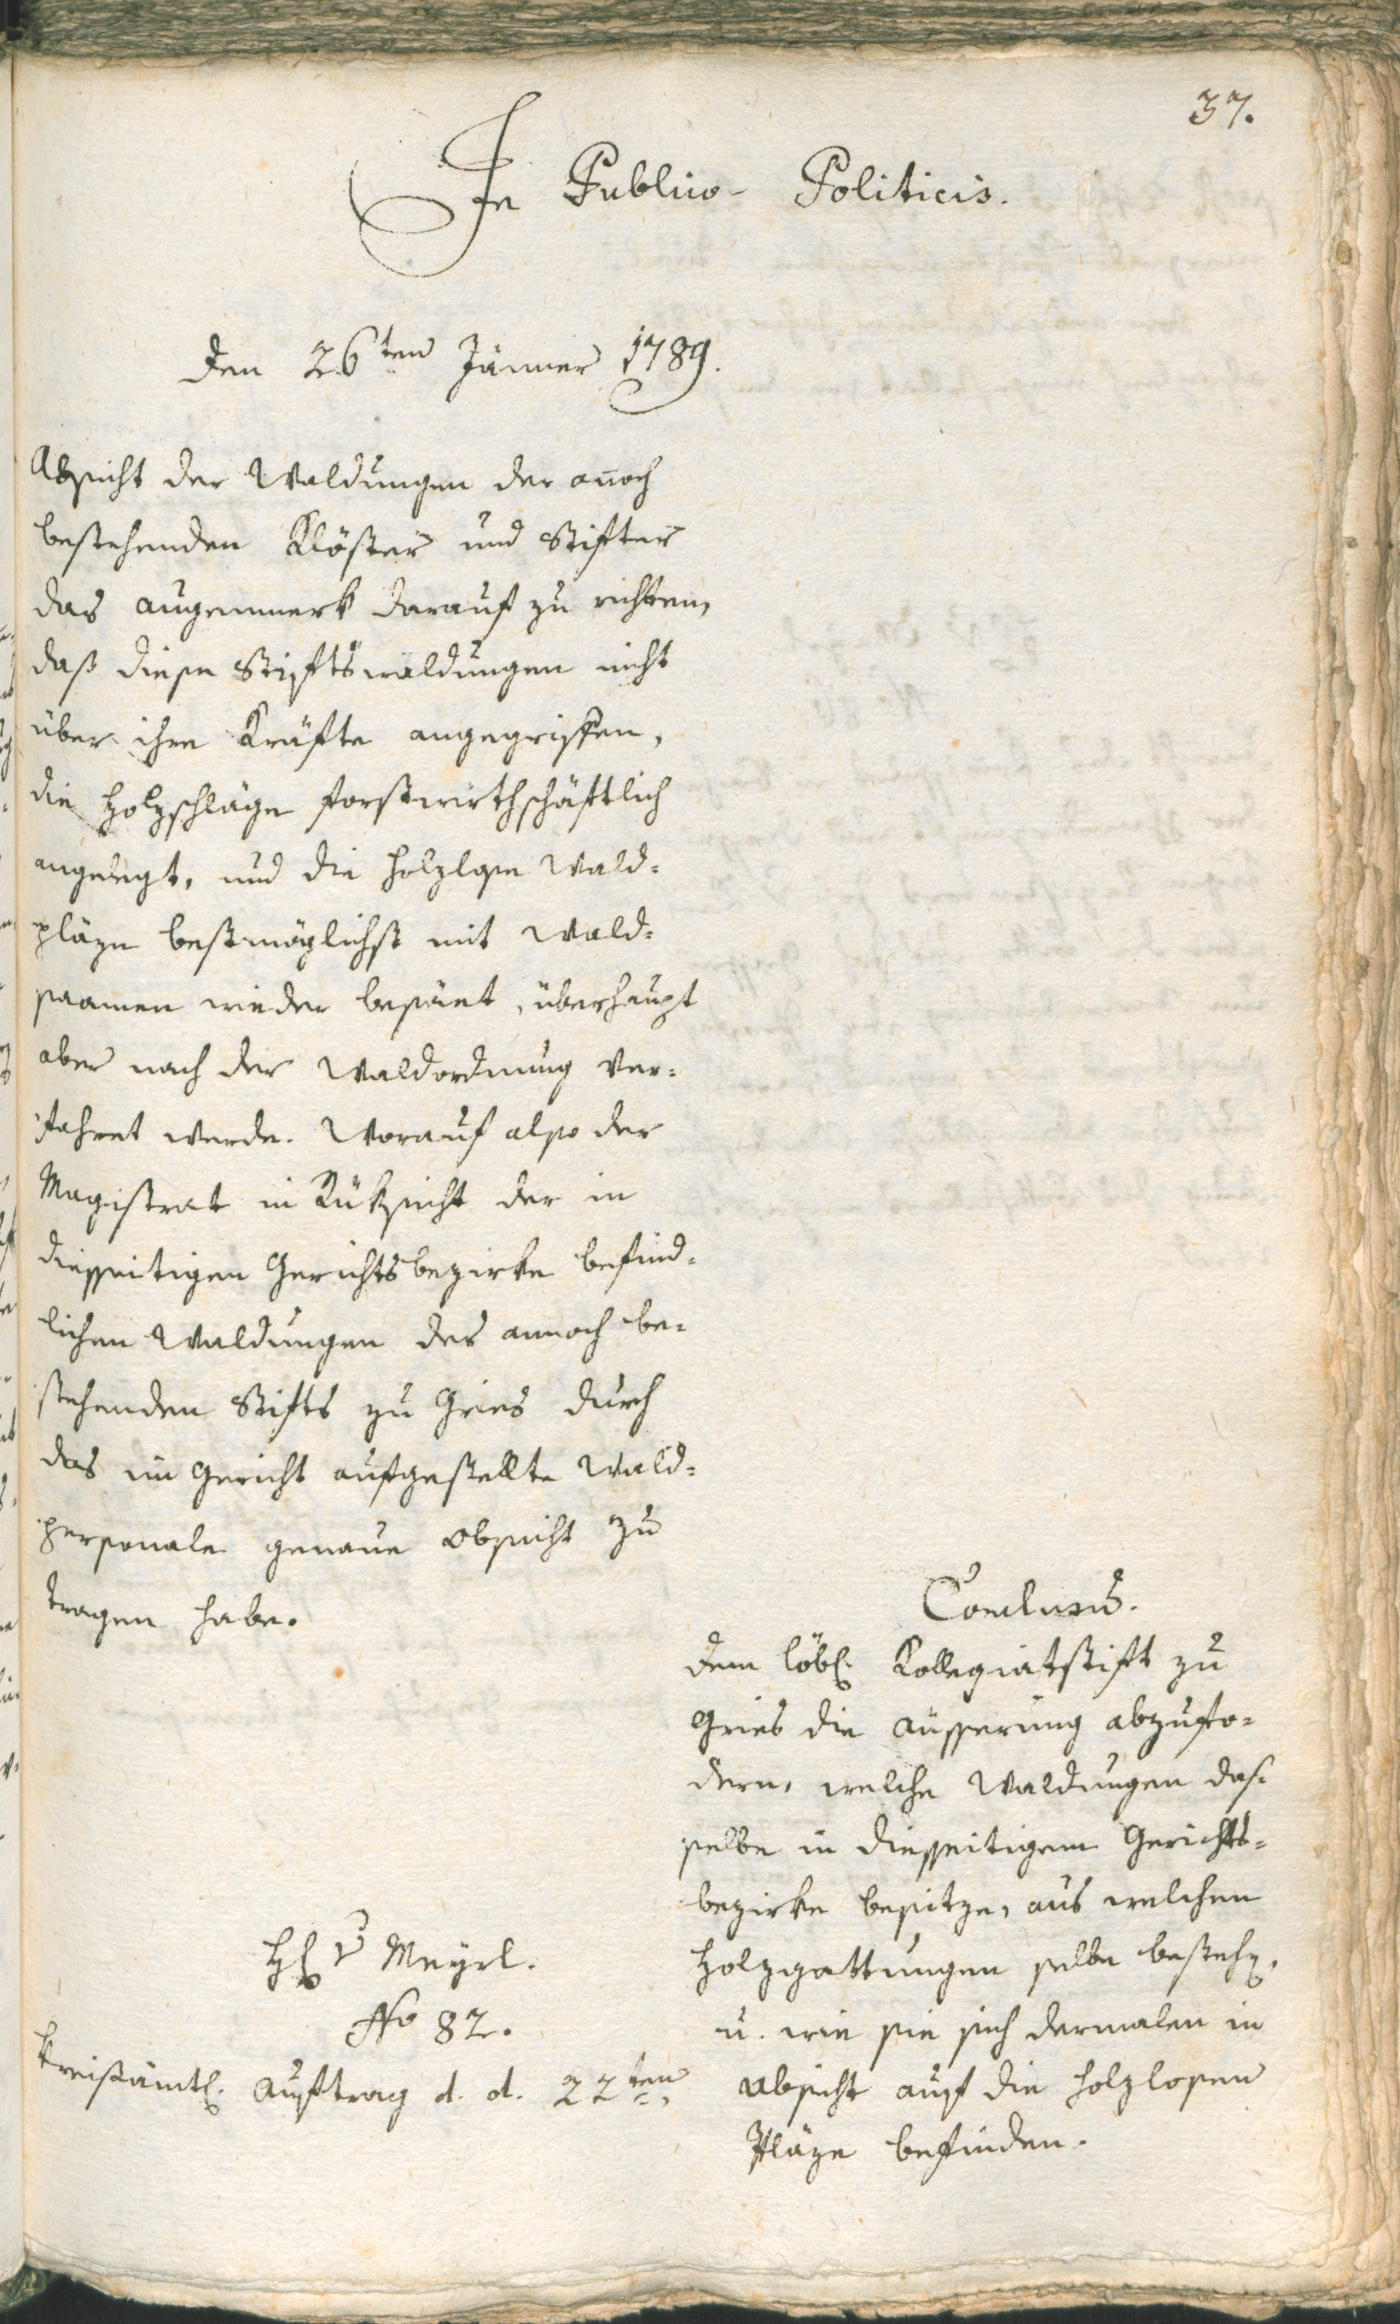 37.
In Publico- Politicis.
Den 26ten Jänner 1789.
Absicht der Waldungen der anoch
bestehenden Klöster und Stifter
das augenmerk darauf zu richten,
daß diese Stiftswaldungen nicht
über ihre Kräfte angegriffen,
die Holzschläge forstwirthschäftlich
angelegt, und die holzlose Wald-
pläze bestmöglichst mit Wald-
saamen wieder besäet, überhaupt
aber nach der Waldordnung ver-
fahret werde. Worauf also der
Magistrat in Rüksicht der in
diesseitigen Gerichtsbezirke befind-
lichen Waldungen des annoch be-
stehenden Stifts zu Gries durch
das im Gericht aufgestellte Wald-
personale genaue obsicht zu
tragen habe.
Conclusum.
Dem löbl. Kollegiatstift zu
Gries die äusserung abzufo-
dern, welche Waldungen das-
selbe in diesseitigem Gerichts-
bezirke besitze, aus welchen
Holzgattungen selbe bestehen,
u. wie sie sich dermalen in
Absicht auf die holzlosen
Pläze befinden.
H. v Meyrl.
No 82.
Kreisämtl. Auftrag d. d. 22ten,